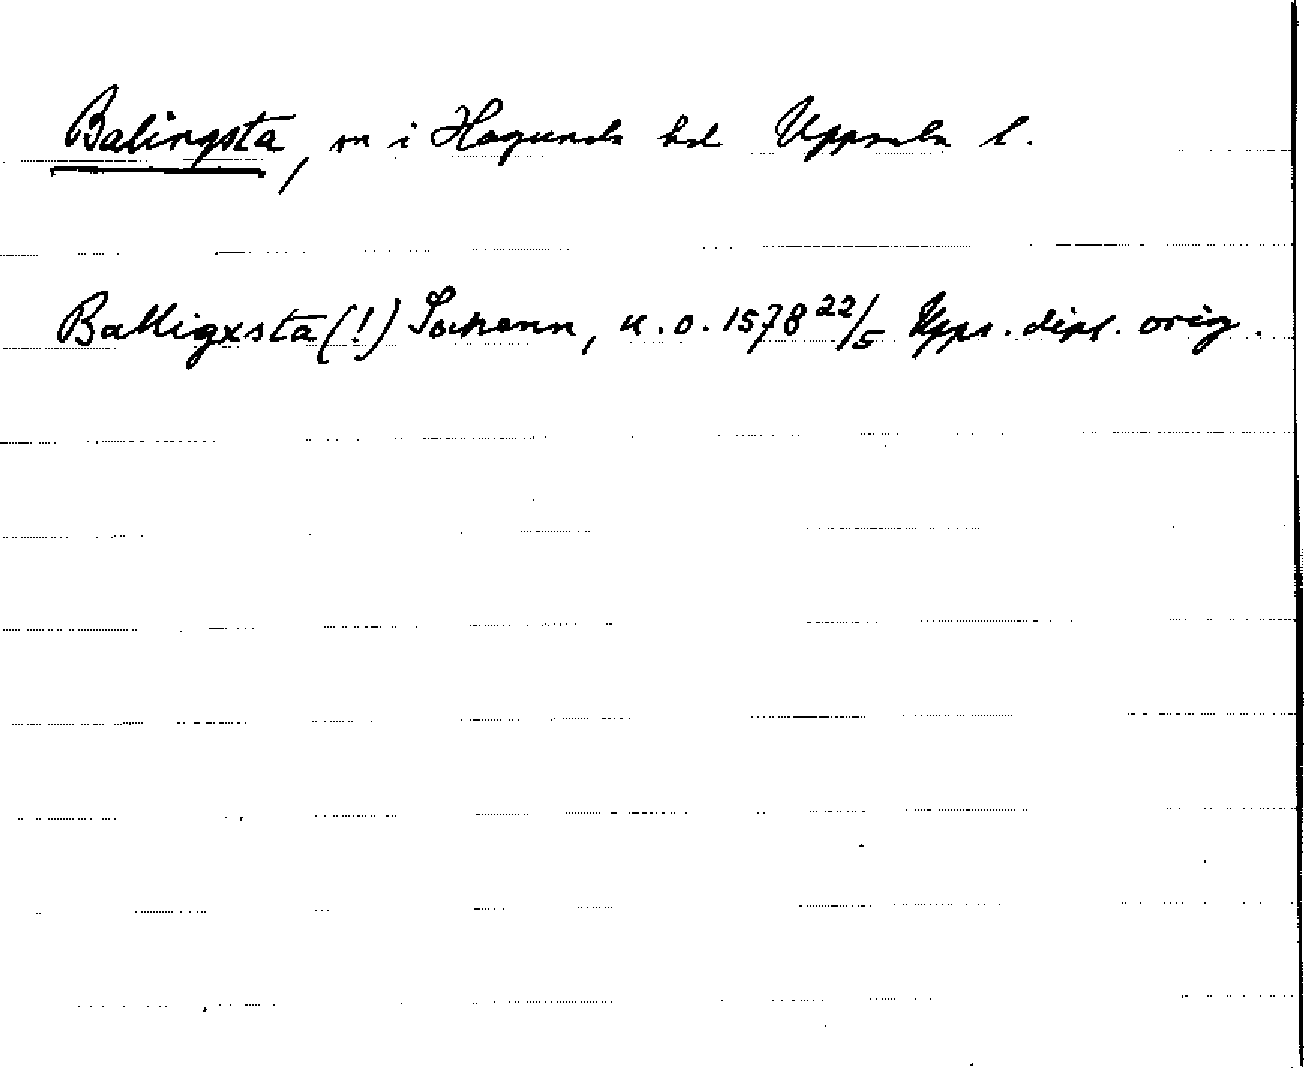 Balingsta, sn i Hagunda hd Uppsala l.
Balligxsta(!) Sochenn, u.o. 1578 22/5 Upps. dipl. orig.